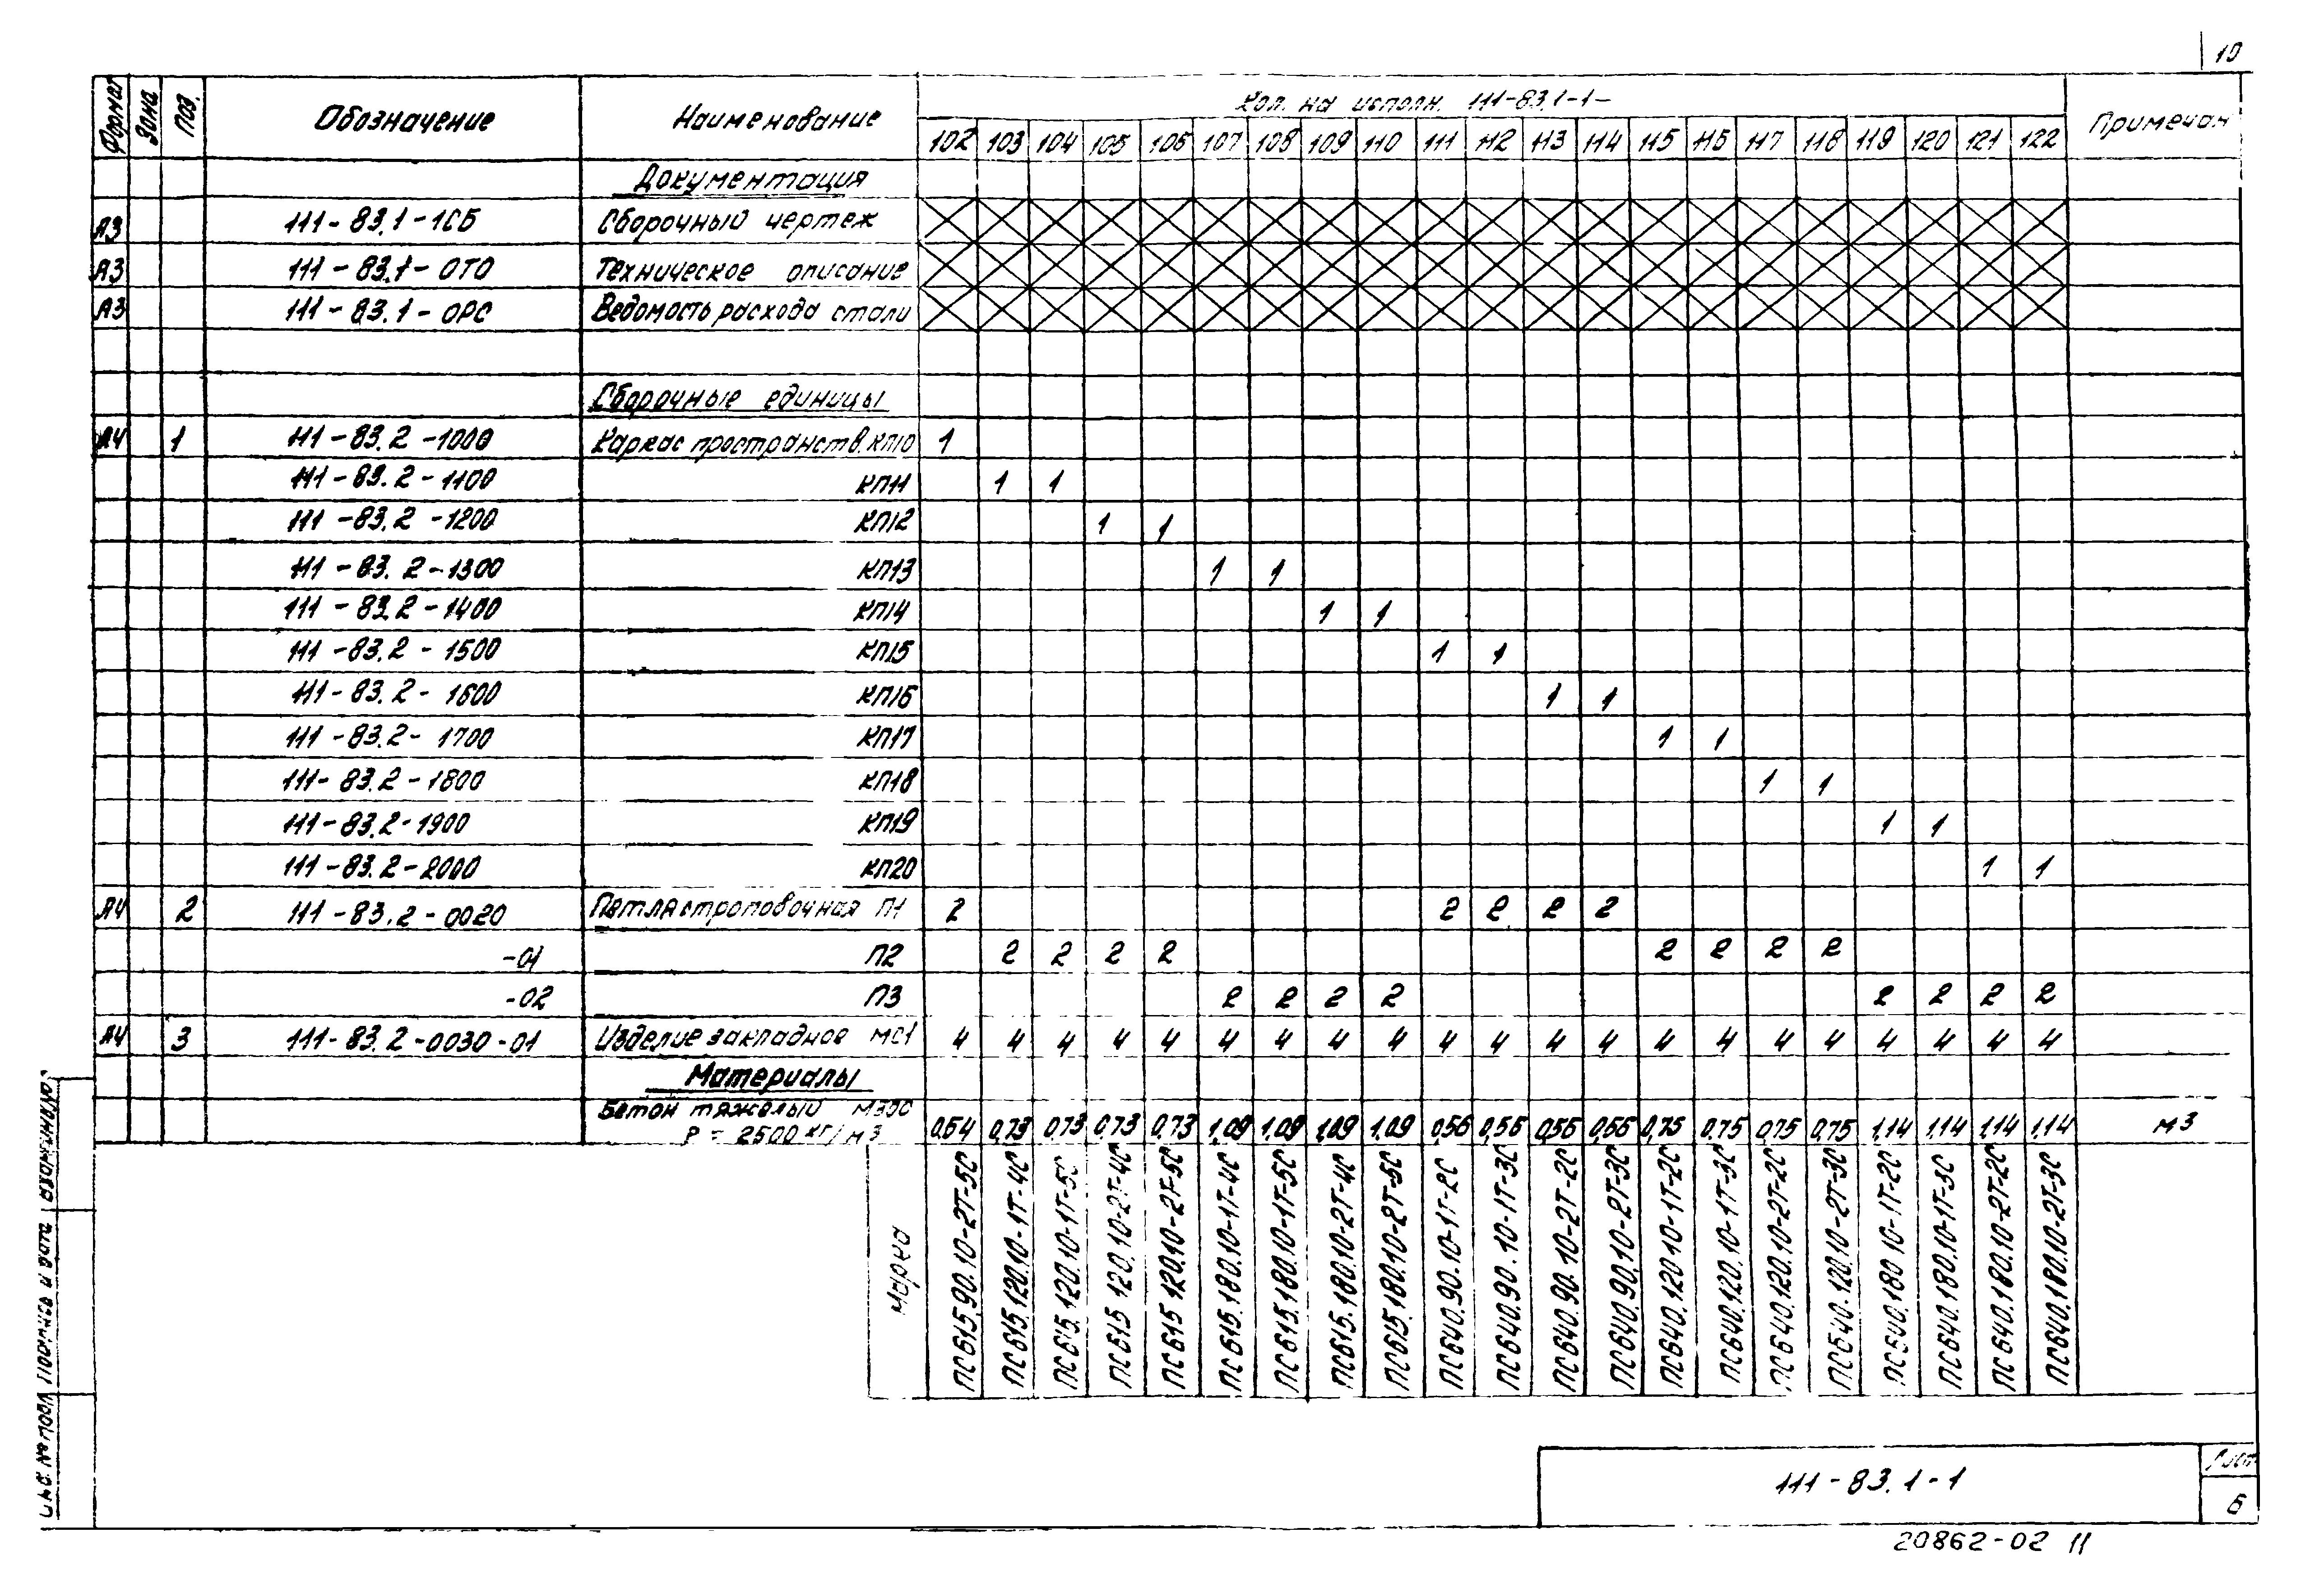 10
Формат Зона Поз. Обозначение Наименование Кол. на исполн. 111-83.1-1- Примечан
102 103 104 105 106 107 108 109 110 111 112 113 114 115 116 117 118 119 120 121 122
Документация
А3 111-83.1-1СБ Сборочный чертеж
А3 111-83.1-0ТО Техническое описание
А3 111-83.1-0РС Ведомость расхода стали
Сборочные единицы
А4 1 111-83.2-1000 Каркас пространств. КП10 1
111-83.2-1100 КП11 1 1
111-83.2-1200 КП12 1 1
111-83.2-1300 КП13 1 1
111-83.2-1400 КП14 1 1
111-83.2-1500 КП15 1 1
111-83.2-1600 КП16 1 1
111-83.2-1700 КП17 1 1
111-83.2-1800 КП18 1 1
111-83.2-1900 КП19 1 1
111-83.2-2000 КП20 1 1
А4 2 111-83.2-0020 Петля строповочная П1 2 2 2 2 2
-01 П2 2 2 2 2 2 2 2 2
-02 П3 2 2 2 2 2 2 2 2
А4 3 111-83.2-0030-01 Изделие закладное МС1 4 4 4 4 4 4 4 4 4 4 4 4 4 4 4 4 4 4 4 4 4
Материалы
Бетон тяжелый М300
Р = 2500 кг/м3 0,54 0,73 0,73 0,73 0,73 1,09 1,09 1,09 1,09 0,56 0,56 0,56 0,56 0,75 0,75 0,75 0,75 1,14 1,14 1,14 1,14 м3
Марка
ПС615.90.10-2Т-5С
ПС615.120.10-1Т-4С
ПС615.120.10-1Т-5С
ПС615 120.10-2Т-4С
ПС615 120.10-2Т-5С
ПС615.180.10-1Т-4С
ПС615.180.10-1Т-5С
ПС615.180.10-2Т-4С
ПС615.180.10-2Т-5С
ПС640.90.10-1Т-2С
ПС640.90.10-1Т-3С
ПС640.90.10-2Т-2С
ПС640.90.10-2Т-3С
ПС640.120 10-1Т-2С
ПС640.120.10-1Т-3С
ПС640.120.10-2Т-2С
ПС640.120.10-2Т-3С
ПС640.180 10-1Т-2С
ПС640.180.10-1Т-3С
ПС640.180.10-2Т-2С
ПС640.180.10-2Т-3С
Инв. № подл Подпись и дата
111-83.1-1
Лист
6
20862-02 11